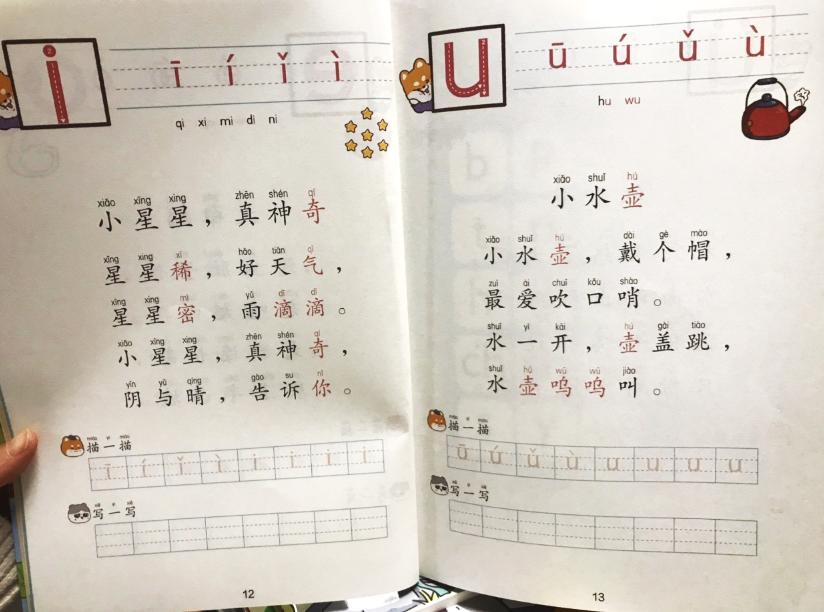 i
ī í ǐ ì
qi xi mi di ni
xiǎo xīng xing zhēn shén qí
小星星，真神奇
xīng xing xī hǎo tiān qì
星星稀，好天气，
xīng xing mì yǔ dī dī
星星密，雨滴滴。
xiǎo xīng xing zhēn shén qí
小星星，真神奇，
yīn yǔ qíng gào su nǐ
阴与晴，告诉你。
miáo yi miáo
描一描
ī í ǐ ì i i i i
写一写
12
u
ū ú ǔ ù
hu wu
xiǎo shuǐ hú
小水壶
xiǎo shuǐ hú dài gè mào
小水壶，戴个帽，
zuì ài chuī kǒu shào
最爱吹口哨。
shuǐ yì kāi hú gài tiào
水一开，壶盖跳，
shuǐ hú wū wū jiào
水壶呜呜叫。
miáo yi miáo
描一描
ū ú ǔ ù u u u u
写一写
13